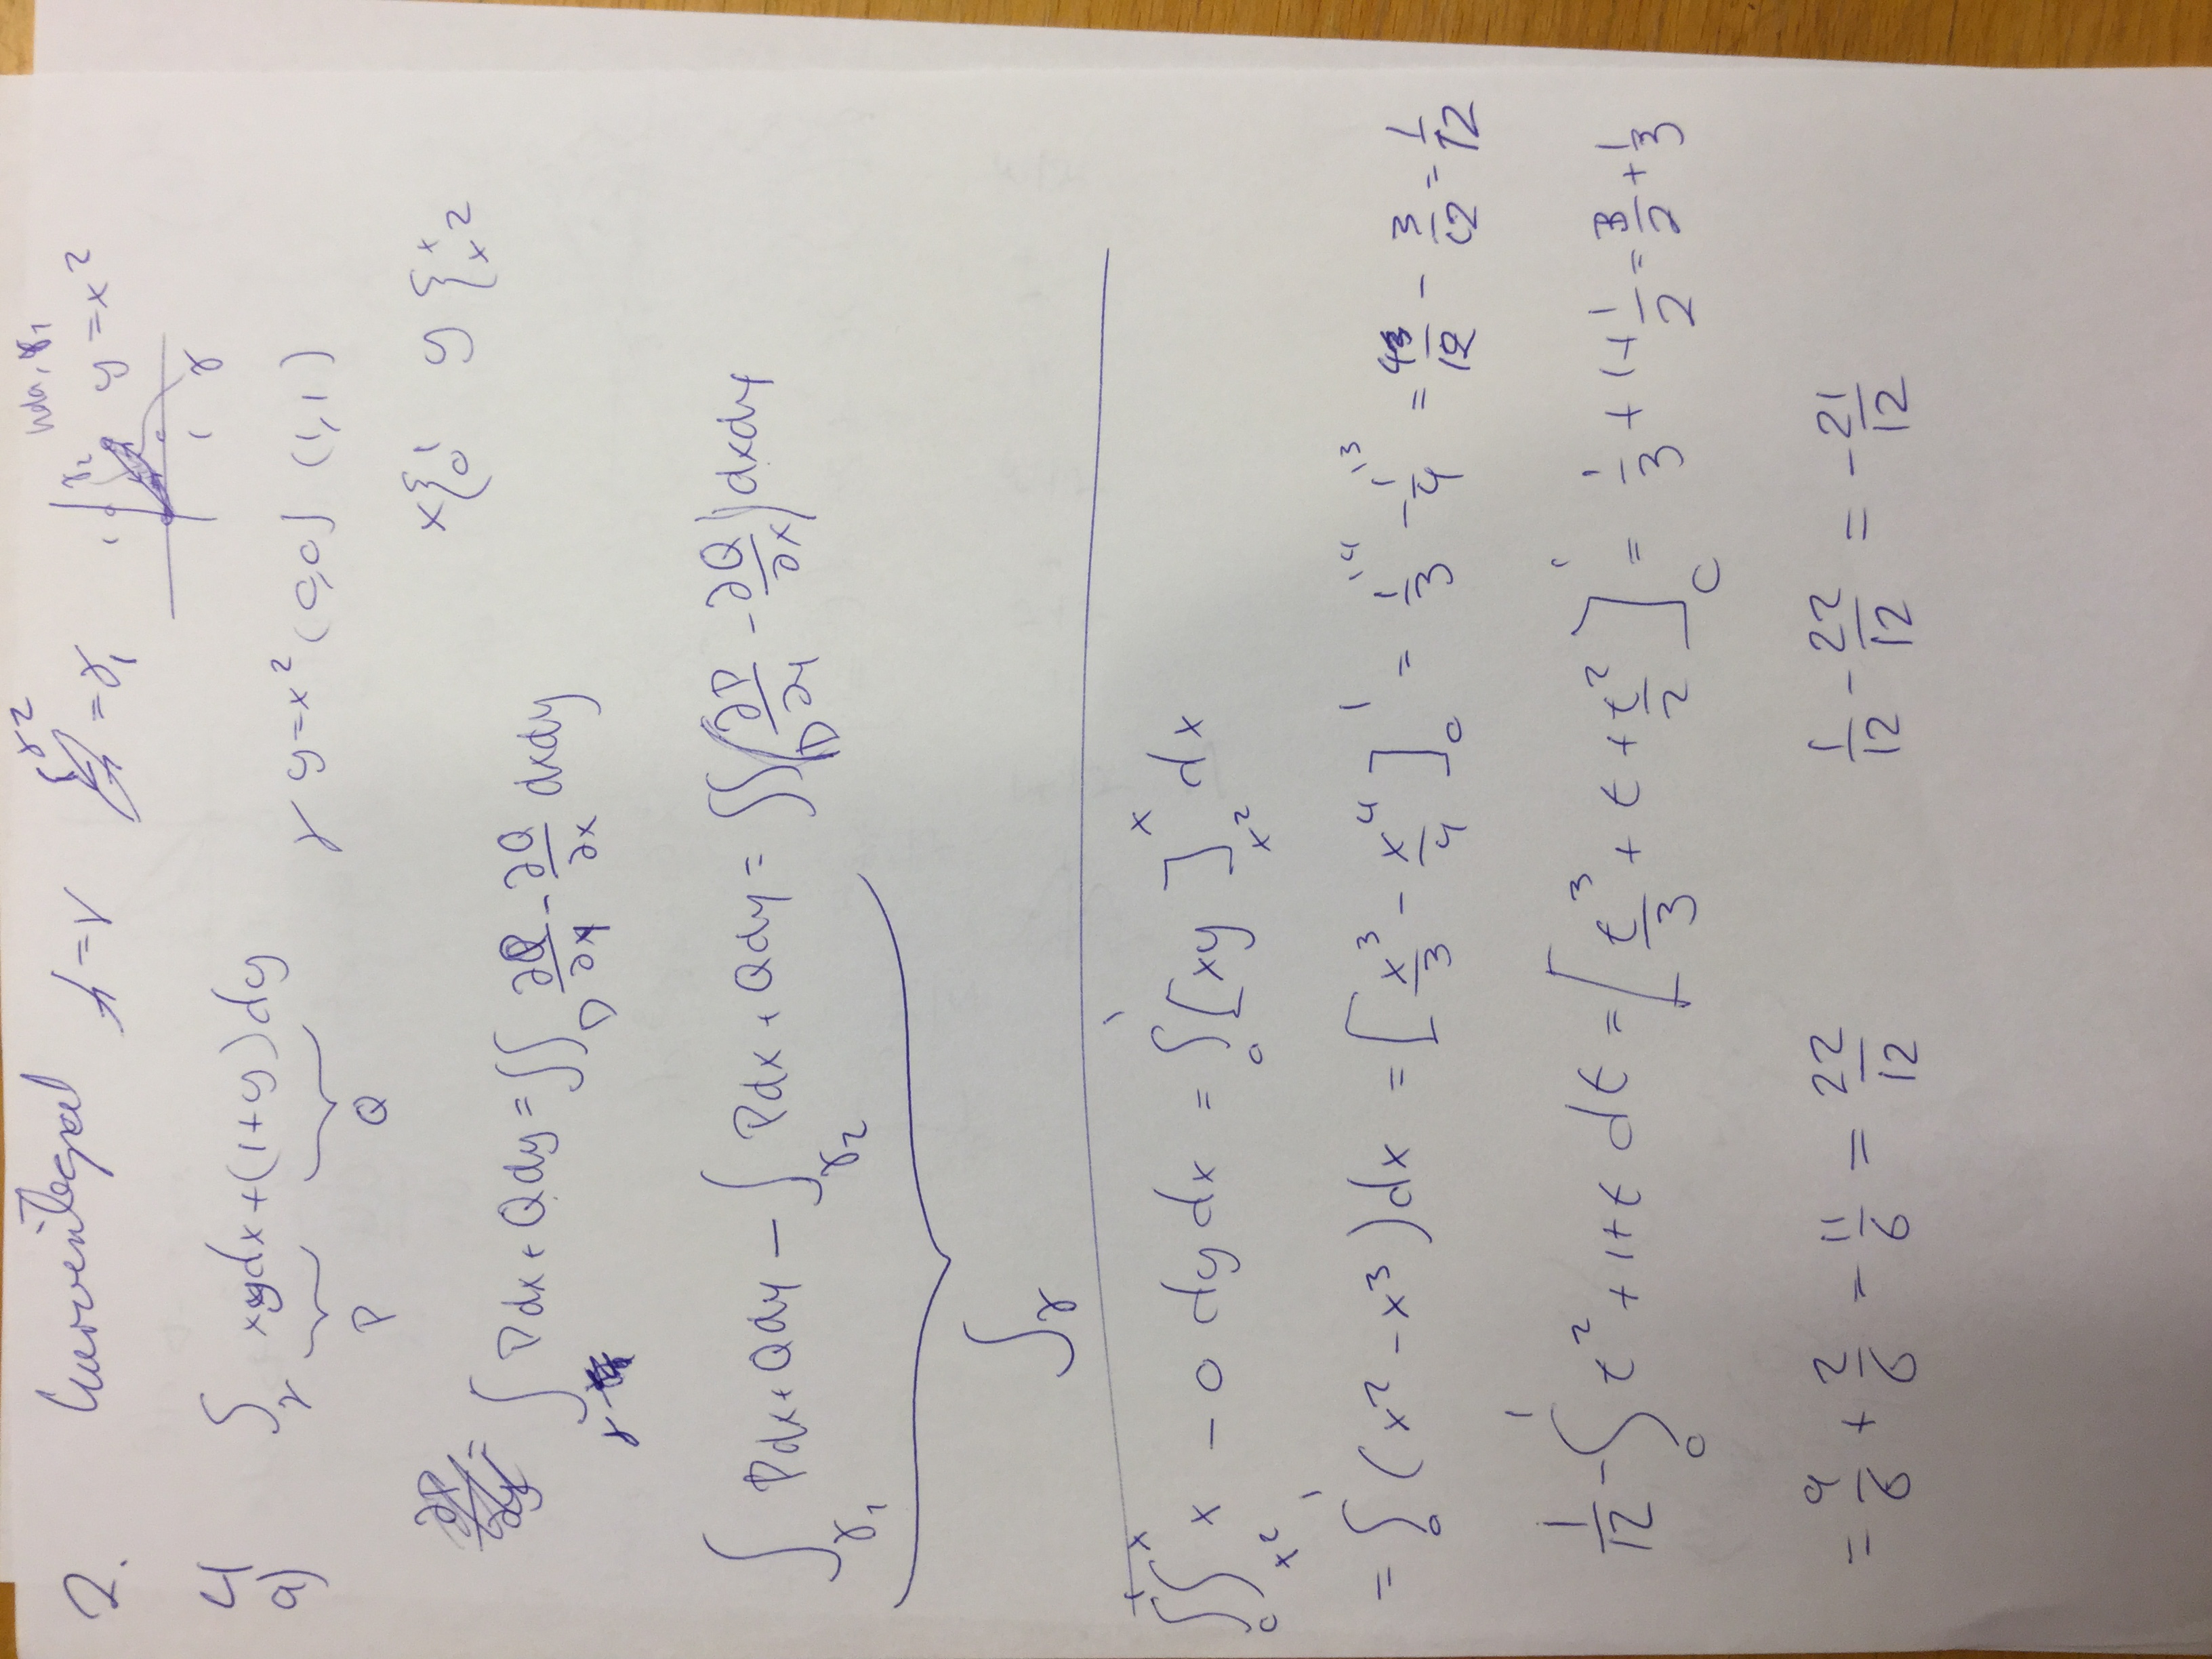 2. Kurvintegral = γ γ2 = γ₁ γ₂ γ₁ y = x²
1 1 γ
4 ∫γ xydx + (1+y)dy
a) P Q γ y=x² (0,0) (1,1)
x{¹₀ y{ˣₓ²
∫γ Pdx + Qdy = ∬D ∂P/∂y - ∂Q/∂x dxdy
∫γ₁ Pdx + Qdy - ∫γ₂ Pdx + Qdy = ∬D (∂P/∂y - ∂Q/∂x) dxdy
∫γ
∫₀¹∫ₓ²ˣ x - 0 dydx = ∫₀¹ [xy]ₓ²ˣ dx
= ∫₀¹ (x² - x³)dx = [x³/3 - x⁴/4]₀¹ = 1/3 ⁱ⁴ - 1/4 ⁱ³ = 4/12 - 3/12 = 1/12
1/12 - ∫₀¹ t² + 1+t dt = [t³/3 + t + t²/2]₀¹ = 1/3 + 1 + 1/2 = 3/2 + 1/3
= 9/6 + 2/6 = 11/6 = 22/12 1/12 - 22/12 = -21/12